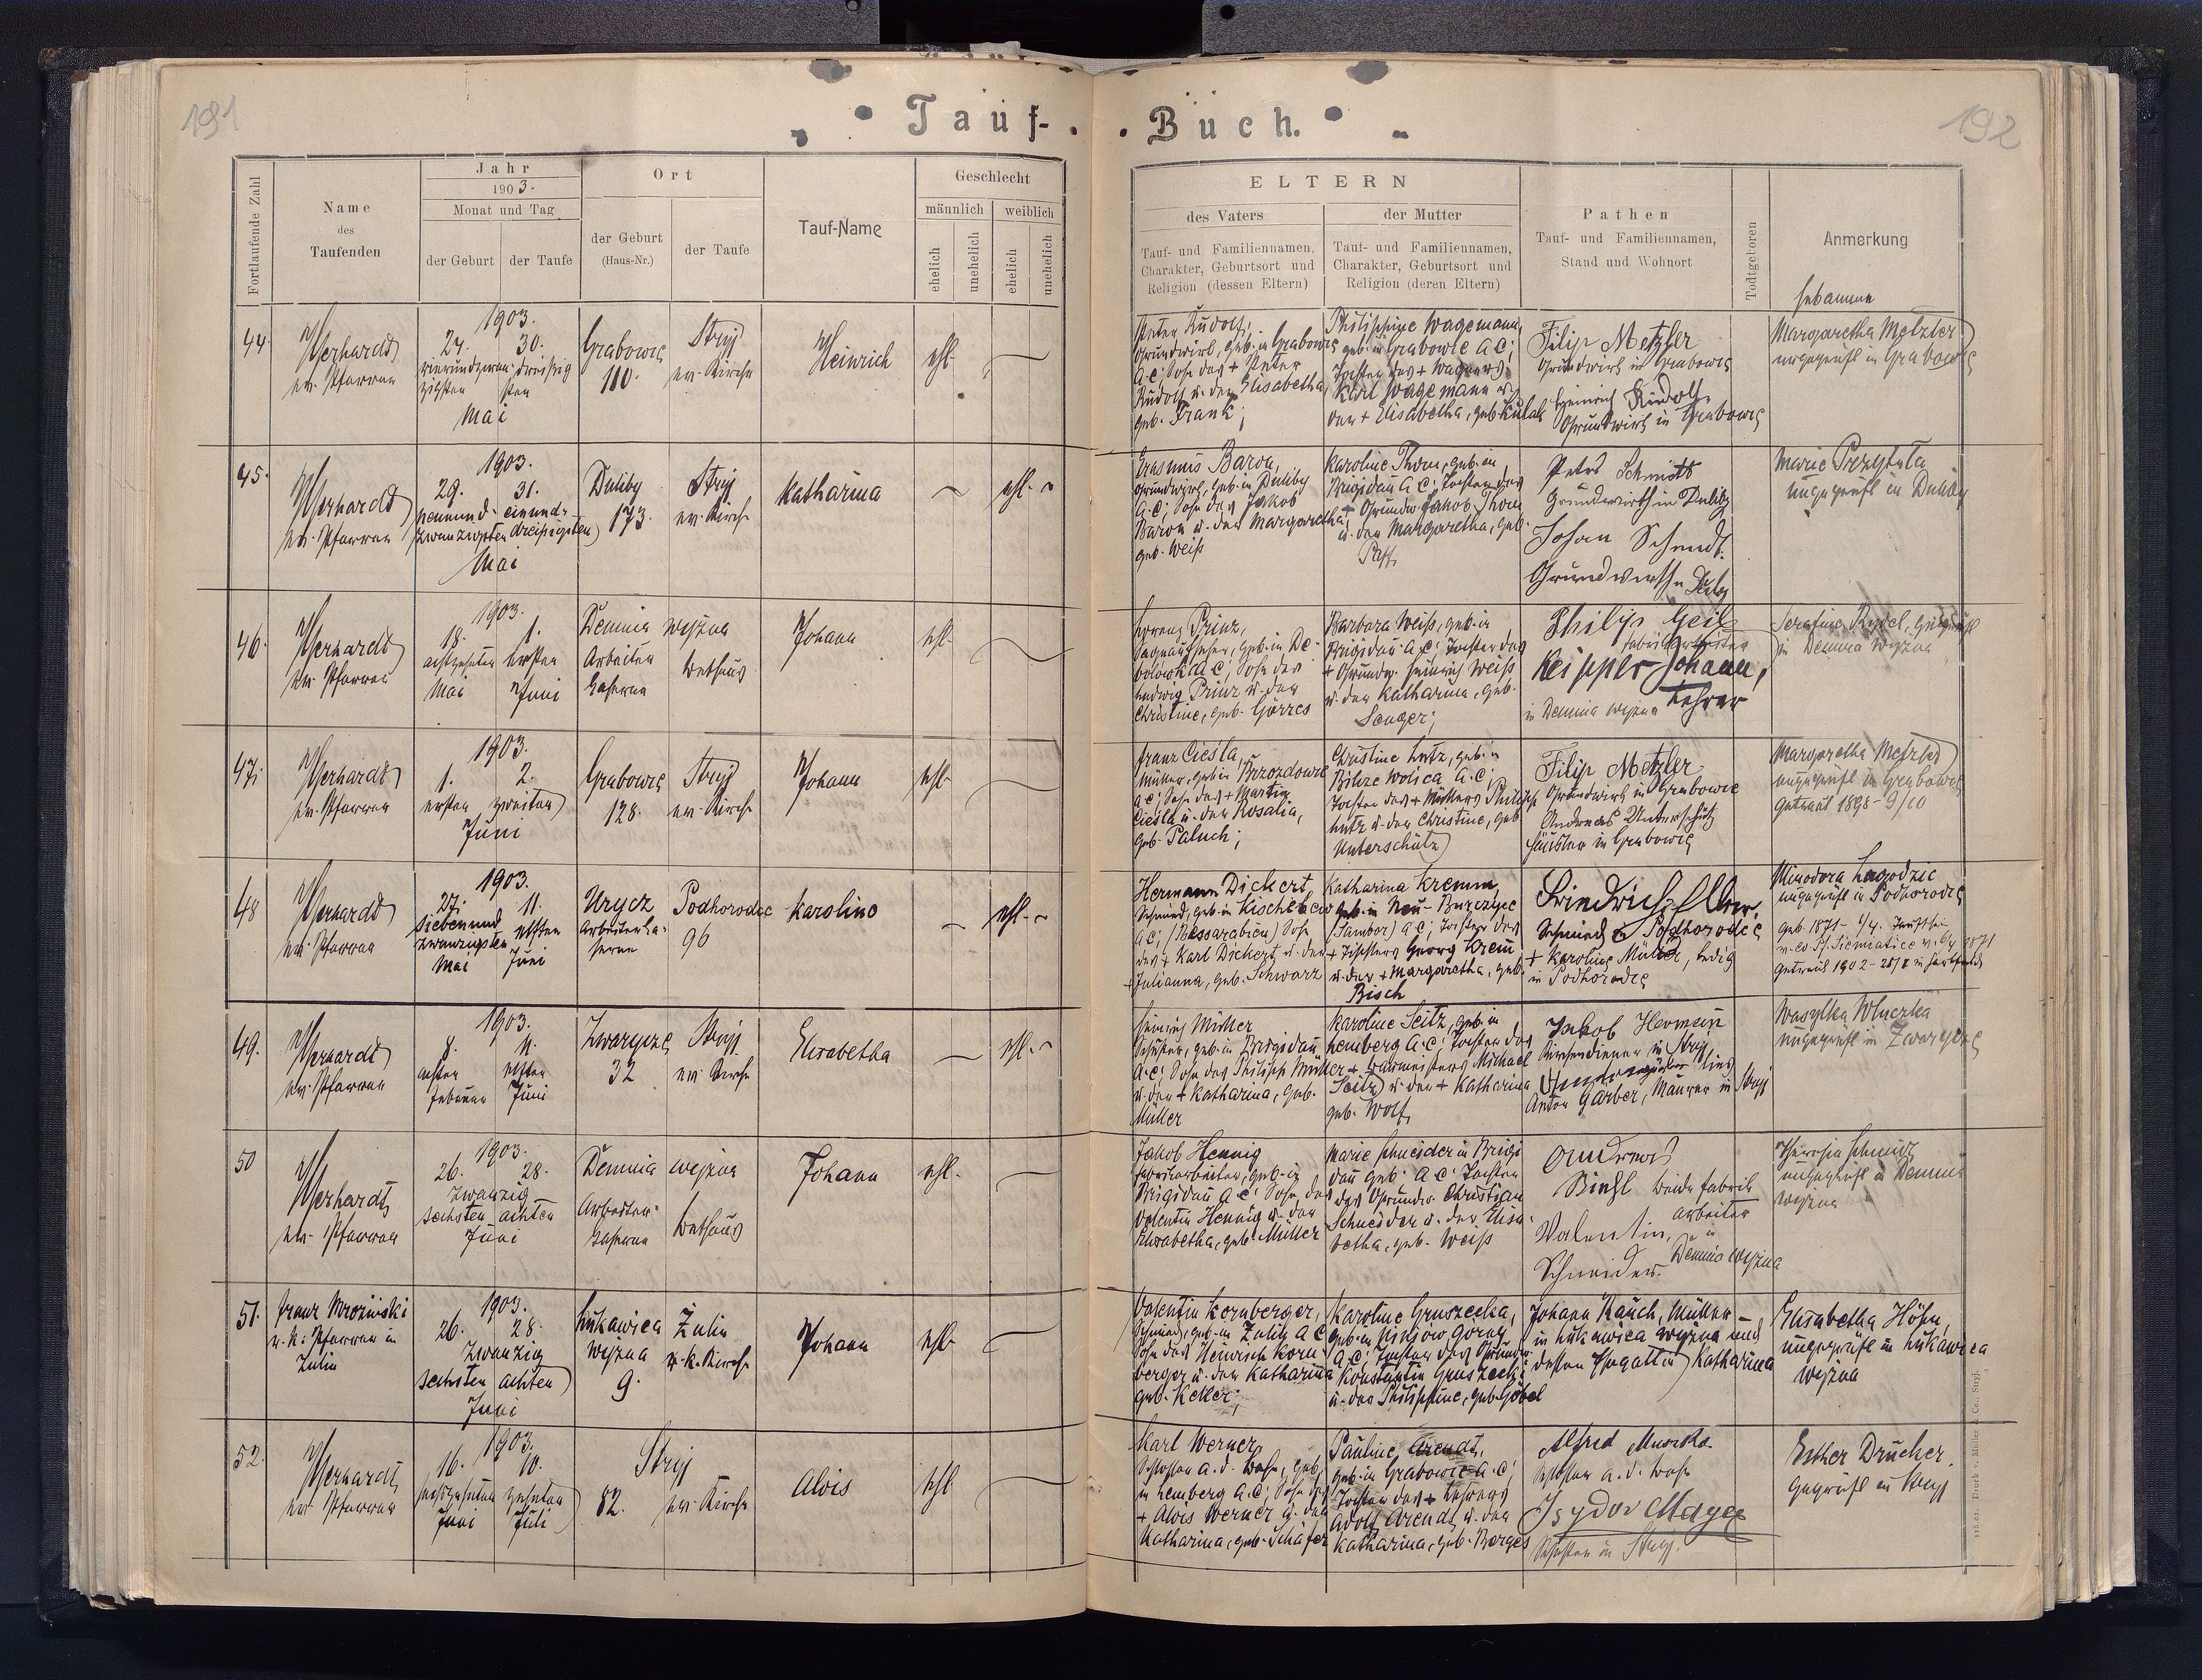 191
192
Tauf-
Buch.
Fortlaufende Zahl
Name
des
Taufenden
Jahr
1903.
Monat und Tag
der Geburt
der Taufe
Ort
der Geburt
(Haus-Nr.)
der Taufe
Tauf-Name
Geschlecht
männlich
weiblich
ehelich
unehelich
ehelich
unehelich
ELTERN
des Vaters
Tauf- und Familiennamen,
Charakter, Geburtsort und
Religion (dessen Eltern)
der Mutter
Tauf- und Familiennamen,
Charakter, Geburtsort und
Religion (deren Eltern)
Pathen
Tauf- und Familiennamen,
Stand und Wohnort
Todtgeboren
Anmerkung
Hebamme
44.
ev. Pfarrer
1903.
24. 30.
vierundzwan- dreißig
zigsten sten
Mai
Grabowce
110.
Stryj
ev. Kirche
Heinrich
ehl.
Peter Rudolf,
Grundwirt, geb. in Grabowce
A.C; Sohn des + Peter
Rudolf u. der Elisabetha,
geb. Frank;
Philippine Wagemann,
geb. in Grabowce A.C;
Tochter des + Wagners
Karl Wagemann u.
der + Elisabetha, geb. Kulak
Filip Metzler
Grundwirt in Grabowce
Heinrich Rudolf
Grundwirt in Grabowce
Margaretha Metzler
ungeprüft in Grabowce
45.
ev. Pfarrer
1903.
29. 31.
neunund- einund-
zwanzigsten dreißigsten
Mai
Duliby
173.
Stryj
ev. Kirche
Katharina
ehl.
Erasmus Baron,
Grundwirt, geb. in Duliby
A.C; Sohn des Jakob
Baron u. der Margaretha,
geb. Weiß
Karoline Thom, geb. in
Brigidau A.C; Tochter des
+ Grundw. Jakob Thom
u. der Margaretha, geb.
Paff
Peter Schmidt
Grundwirth in Duliby
Johan Schmidt
Marie Przytuła
ungeprüft in Duliby
46.
ev. Pfarrer
1903.
18. 1.
achtzehnten ersten
Mai Juni
Demnia wyżna
Arbeiter
Kaserne
Bethaus
Johann
ehl.
Prinz,
Ludwig Prinz u. der
Christine, geb. Görres
Barbara Weiß, geb. in
Brigidau A.C; Tochter des
+ Grundw. Heinrich Weiß
u. der Katharina, geb.
Senger;
Philip Geib
Fabriksarbeiter
Keipper Johann,
in Demnia wyżna Lehrer
Serafine Rydel, geprüft
in Demnia wyżna
47.
ev. Pfarrer
1903.
1. 2.
ersten zweiten
Juni
Grabowce
128.
Stryj
ev. Kirche
Johann
ehl.
Franz Cieśla,
Müller, geb. in Brzozdowce
A.C; Sohn des + Martin
Cieśla u. der Rosalia,
geb. Paluch;
Christine Lutz, geb. in
Bilcze Wolica A.C;
Tochter des + Müllers Philipp
Lutz u. der Christine, geb.
Unterschütz
Filip Metzler
Grundwirt in Grabowce
Andreas Unterschütz
Häusler in Grabowce
Margaretha Metzler
ungeprüft in Grabowce
getraut 1898-9/10
48
ev. Pfarrer
1903.
27. 11.
siebenund elften
zwanzigsten
Mai Juni
Urycz
Arbeiterka-
serne
Podhorodce
96
Karoline
ehl.
Hermann Dickert,
Schmied, geb. in
A.C; (Bessarabien) Sohn
des + Karl Dickert u. der
+ Julianna, geb. Schwarz
Katharina Kremm,
geb. in Neu-Burczyce
(Sambor) A.C; Tochter des
+ Tischlers Georg Krem
u. der + Margaretha, geb.
Bisch
Schmied in Podhorodce
+ Karoline Müller, ledig
in Podhorodce
Minodora Lagodzic
ungeprüft in Podhorodce
49.
ev. Pfarrer
1903.
8. 11.
achten elften
Februar Juni
32
Stryj
ev. Kirche
Elisabetha
ehl.
Heinrich Müller
Schuster, geb. in Brigidau
A.C; Sohn des Philipp Müller
u. der + Katharina, geb.
Müller
Karoline Seitz, geb. in
Lemberg A.C; Tochter des
Michael
Seitz u. der + Katharina
geb. Wolf
Jakob Herman
Kirchendiener in Stryj
Anton Garber, Maurer in Stryj
50
ev. Pfarrer
1903.
26. 28.
zwanzig
sechsten achten
Juni
Demnia wyżna
Arbeiter-
Kaserne
Bethaus
Johann
ehl.
Jakob Hennig
Fabriksarbeiter, geb. in
Brigidau A.C; Sohn des
Valentin Hennig u. der
Elisabetha, geb. Müller
Marie Schneider in Brigi
dau geb. A.C; Tochter
des Grundw. Christian
Schneider u. der Elisa-
betha, geb. Weiß
beide Fabrik
arbeiter
Valentin, in
Schneider. Demnia wyżna
Theresia Schmidt
ungeprüft in Demnia
wyżna
51.
Franz Mroziński
r. k. Pfarrer in
Żulin
1903.
26. 28.
zwanzig
sechsten achten
Juni
Łukawica
wyżna
9.
Żulin
r. k. Kirche
Johann
ehl.
Valentin Kornberger,
Schmied, geb. in Żulin A.C;
Sohn des Heinrich Korn-
berger u. der Katharina
geb. Keller;
Karoline Gruszecka,
A.C; Tochter des Grundw.
Konstantin Gruszecki
u. der Philippine, geb. Göbel
Johann Rauch, Müller
in Łukawica wyżna und
dessen Ehegattin Katharina
Elisabetha Höhn,
ungeprüft in Łukawica
wyżna
52.
ev. Pfarrer
1903.
16. 10.
sechzehnten zehnten
Juni Juli
Stryj
82.
ev. Kirche
Alois
ehl.
Karl Werner,
Schlosser a. d. Bahn, geb.
in Lemberg A.C; Sohn des
+ Alois Werner u. der
Katharina, geb. Schäfer
Pauline Arendt,
geb. in Grabowce A.C;
Tochter des + Lehrers
Adolf Arendt u. der
Katharina, geb. Berges
Alfred
Schlosser a. d. Bahn
Isydor Mayer
Schlosser in Stryj.
Esther Drucher
geprüft in Stryj
Druck v. Müller & Co., Stryj.